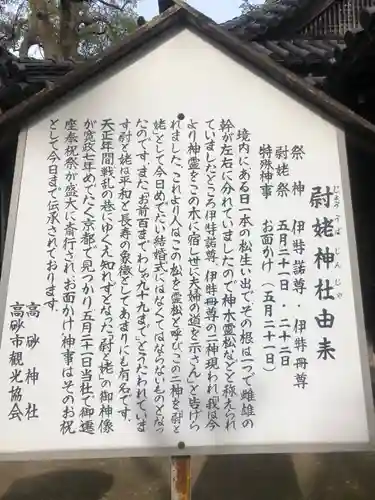 尉姥神社由来
じょうとんばじんじゃ
祭神　伊弉諾尊・伊弉冊尊
尉姥祭　五月二十一日・二十二日
特殊神事　お面かけ（五月二十一日）
境内にある日一本の松生い出で、その根は一つで雌雄の
幹が左右に分れていましたので神木霊松などと称えられ
ていましたところ伊弉諾尊、伊弉冊尊の二神現われ、「我は今
より神霊をこの木に宿し世に夫婦の道を示さん」と告げら
れました、これより人はこの松を霊松と呼び、この二神を尉と
姥として今日めでたい結婚式になくてはならないものとなっ
たのです。また、「お前百までわしゃ九十九まで」とうたわれていま
す尉と姥は平和と長寿の象徴としてあまりにも有名です。
天正年間戦乱の巷にゆくえ知れずとなった「尉と姥」の御神像
が寛政七年めでたく京都で見つかり五月二十一日当社で御遷
座奉祝祭が盛大に斎行され、お面かけ神事はそのお祝
として今日まで伝承されております。
高砂神社
高砂市観光協会